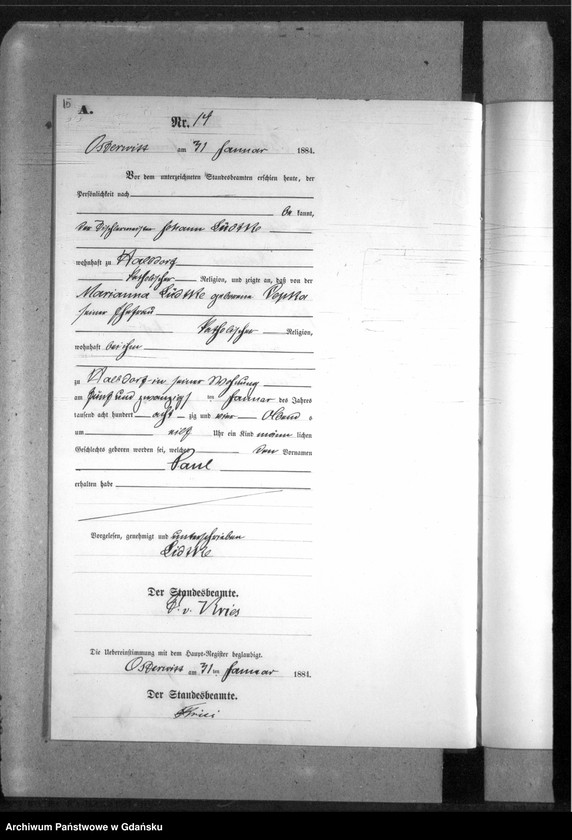 16
A.
Nr. 14
Osterwitt am 31 Januar 1884.
Vor dem unterzeichneten Standesbeamten erschien heute, der
Persönlichkeit nach
be kannt,
der Tischlermeister Johann Lüdtke
wohnhaft zu
katholischer Religion, und zeigte an, daß von der
Marianna Lüdtke geborene
seiner Ehefrau
katholischer Religion,
wohnhaft bei ihm
zu in seiner Wohnung
am fünf und zwanzigsten Januar des Jahres
tausend acht hundert acht zig und vier Abend s
um Uhr ein Kind männ lichen
Geschlechts geboren worden sei, welches den Vornamen
Paul
erhalten habe
Vorgelesen, genehmigt und unterschrieben
Lüdtke
Der Standesbeamte.
v. Kries
Die Uebereinstimmung mit dem Haupt-Register beglaubigt.
Osterwitt am 31 ten Januar 1884.
Der Standesbeamte.
Kries
Archiwum Państwowe w Gdańsku